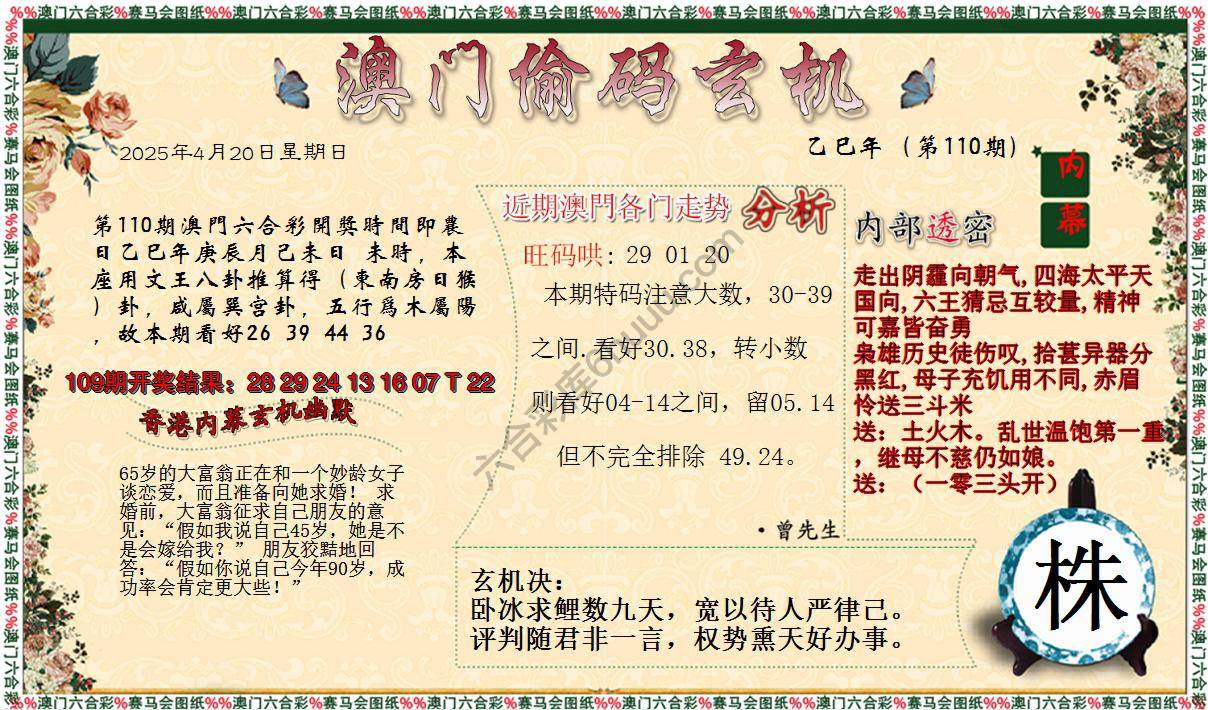 %%澳门六合彩%赛马会图纸%%澳门六合彩%赛马会图纸%%澳门六合彩%赛马会图纸%%澳门六合彩%赛马会图纸%%澳门六合彩%赛马会图纸%%澳门六合彩%赛马会图纸%%
澳门偷码玄机
2025年4月20日星期日
乙巳年（第110期）
内幕
第110期澳門六合彩開獎時間即農
日乙巳年庚辰月己未日 未時，本
座用文王八卦推算得（東南房日猴
）卦，咸屬巽宫卦，五行爲木屬陽
，故本期看好26 39 44 36
109期开奖结果：28 29 24 13 16 07 T 22
香港内幕玄机幽默
65岁的大富翁正在和一个妙龄女子
谈恋爱，而且准备向她求婚！ 求
婚前，大富翁征求自己朋友的意
见：“假如我说自己45岁，她是不
是会嫁给我？” 朋友狡黠地回
答：“假如你说自己今年90岁，成
功率会肯定更大些！”
近期澳門各门走势 分析
旺码哄: 29 01 20
本期特码注意大数，30-39
之间.看好30.38，转小数
则看好04-14之间，留05.14
但不完全排除 49.24。
·曾先生
内部透密
走出阴霾向朝气,四海太平天
国向,六王猜忌互较量,精神
可嘉皆奋勇
枭雄历史徒伤叹,拾葚异器分
黑红,母子充饥用不同,赤眉
怜送三斗米
送：土火木。乱世温饱第一重
，继母不慈仍如娘。
送：（一零三头开）
玄机决：
卧冰求鲤数九天，宽以待人严律己。
评判随君非一言，权势熏天好办事。
株